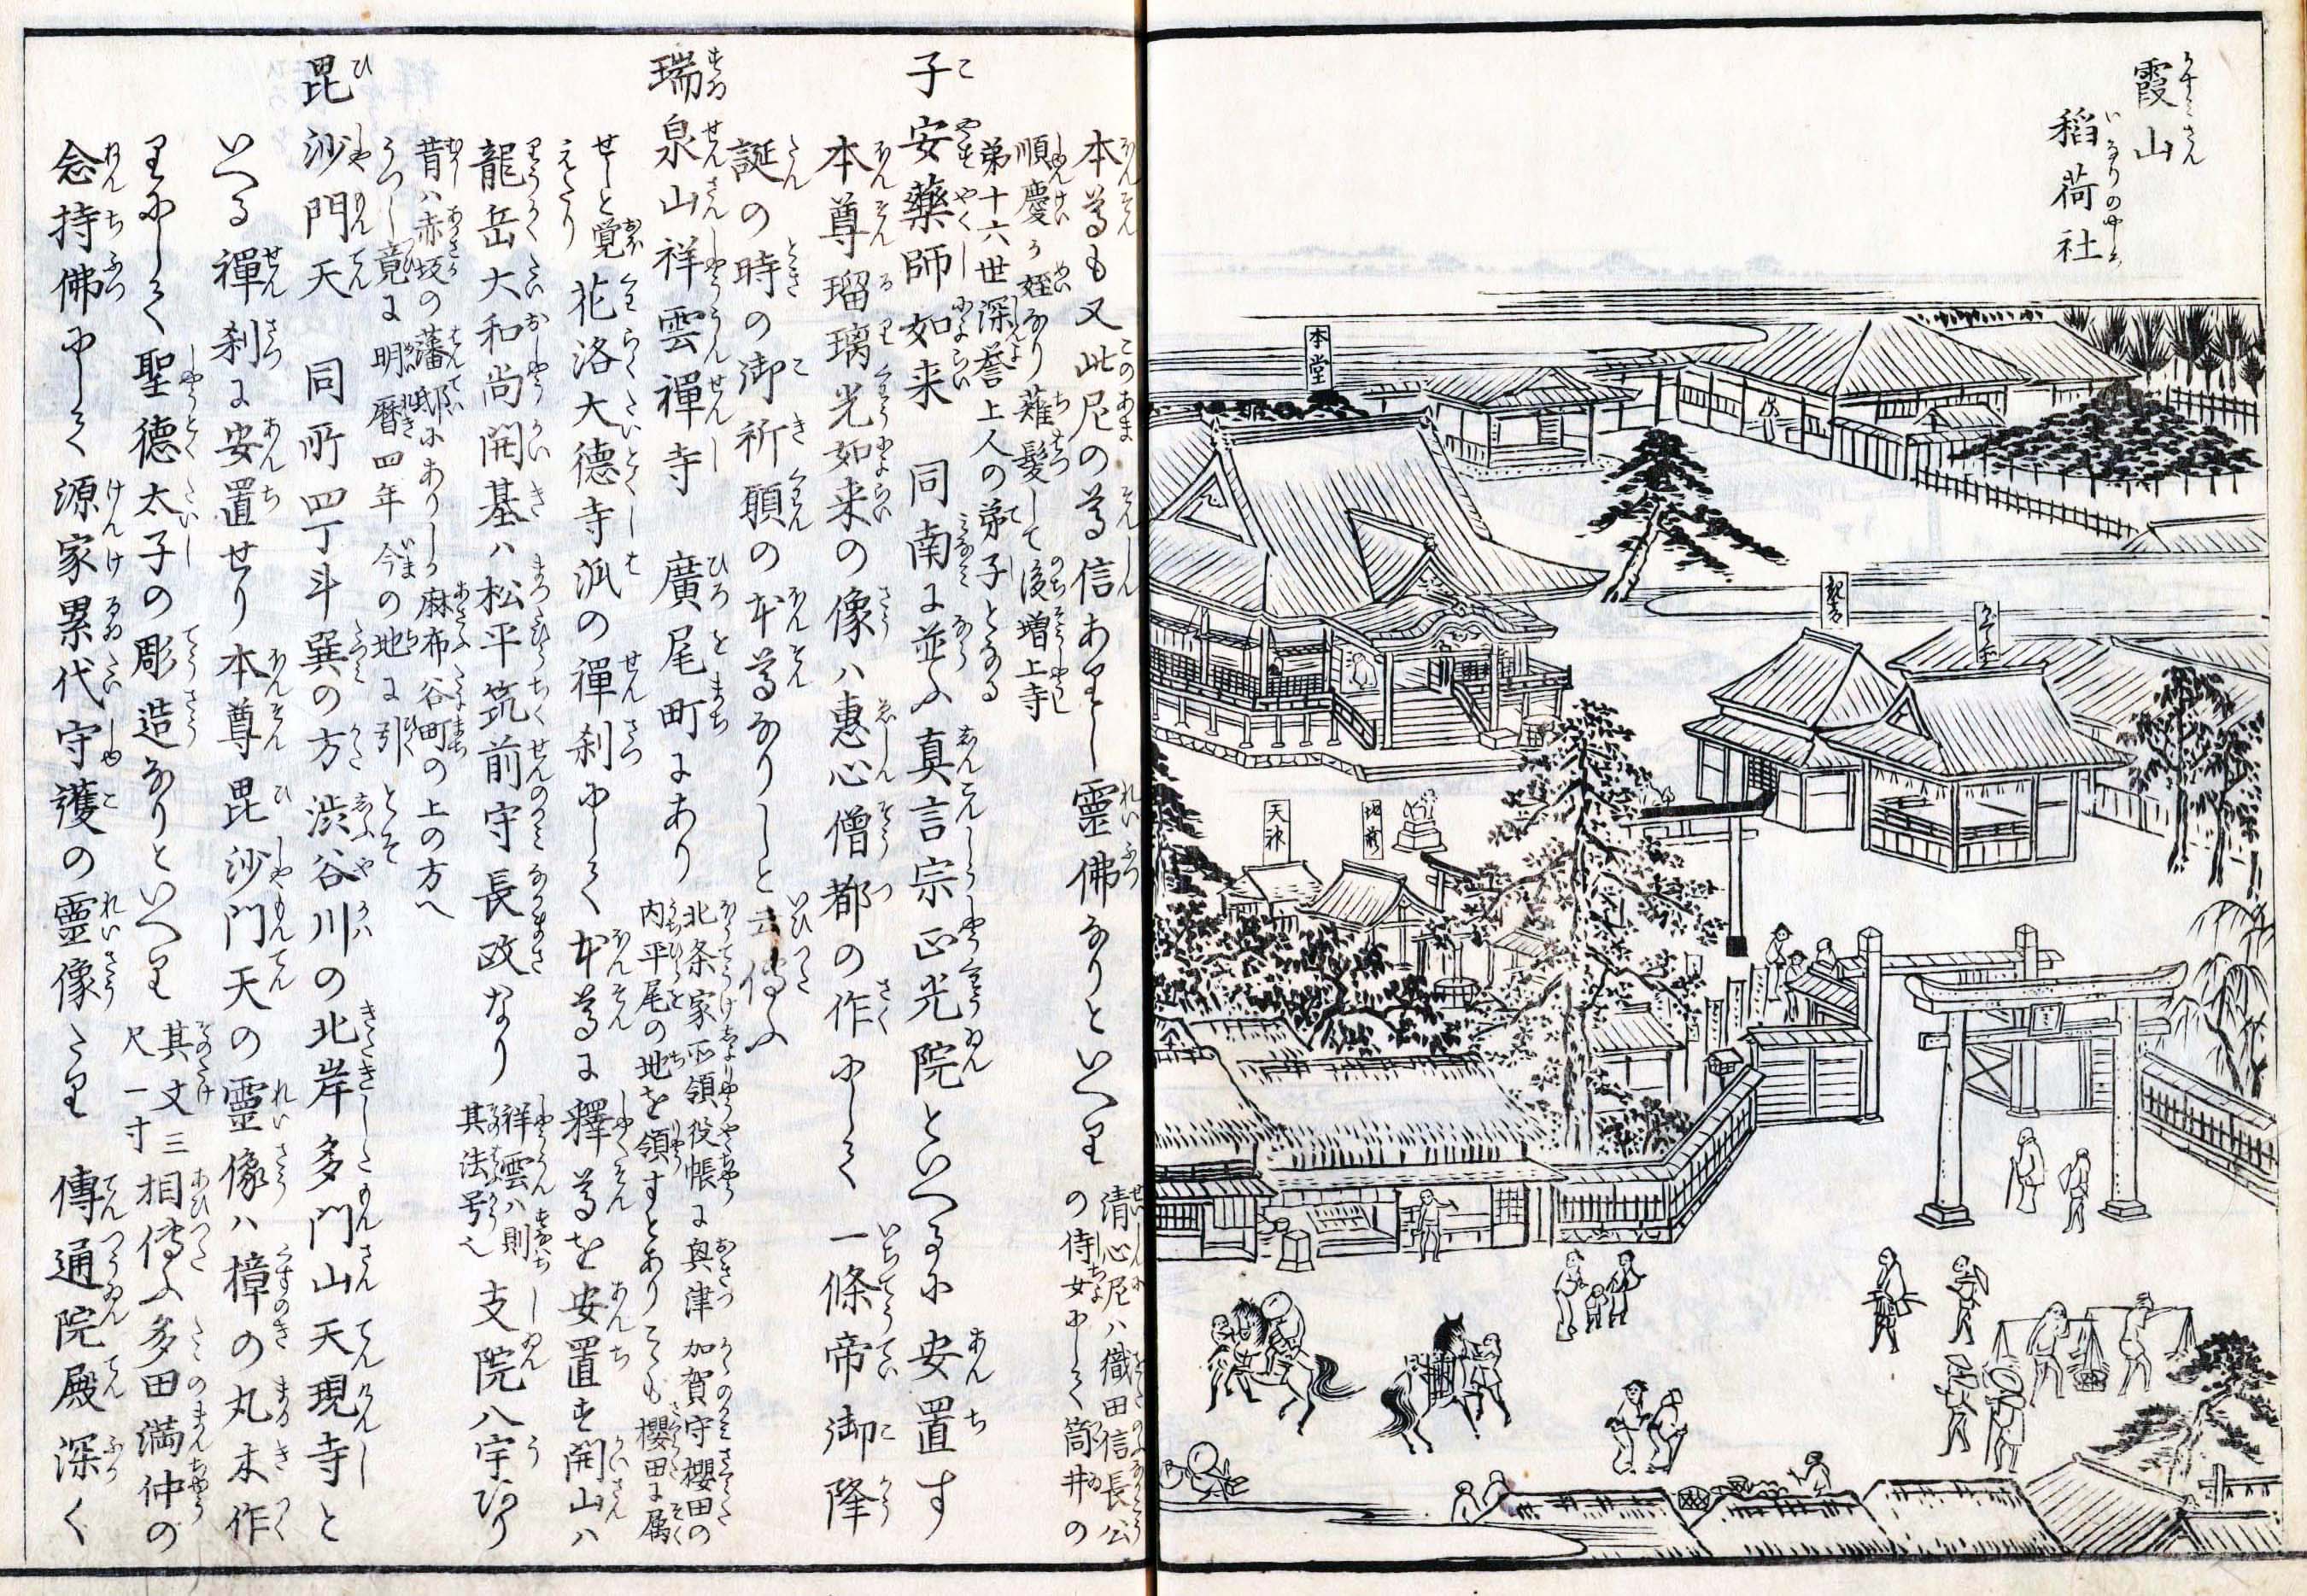 霞山
稲荷社
本堂
観音
天神
稲荷
本尊も又此尼の尊信ありし霊佛なりといへり
清心尼ハ織田信長公
の侍女にして筒井の
順慶か姪なり薙髪して後増上寺
第十六世深誉上人の弟子となる
子安藥師如来 同南に並ふ真言宗正光院といへるに安置す
本尊瑠璃光如来の像ハ惠心僧都の作にして一條帝御降
誕の時の御祈願の本尊なりしと云傳ふ
瑞泉山祥雲禪寺 廣尾町にあり
北条家所領役帳に興津加賀守櫻田の
内平尾の地を領すとありこゝも櫻田に属
せしと覚
えたり
花洛大德寺派の禪刹にして本尊に釋尊を安置す開山ハ
龍岳大和尚開基ハ松平筑前守長政なり
祥雲ハ則
其法号也
支院八宇あり
昔ハ赤坂の藩邸にありしか麻布谷町の上の方へ
うつし竟に明暦四年今の地に引とそ
毘沙門天 同所四丁斗巽の方渋谷川の北岸多門山天現寺と
いへる禪刹に安置せり本尊毘沙門天の霊像ハ樟の丸木作
りにして聖德太子の彫造なりといへり
其丈三
尺一寸
相傳ふ多田満仲の
念持佛にして源家累代守護の霊像たり 傳通院殿深く